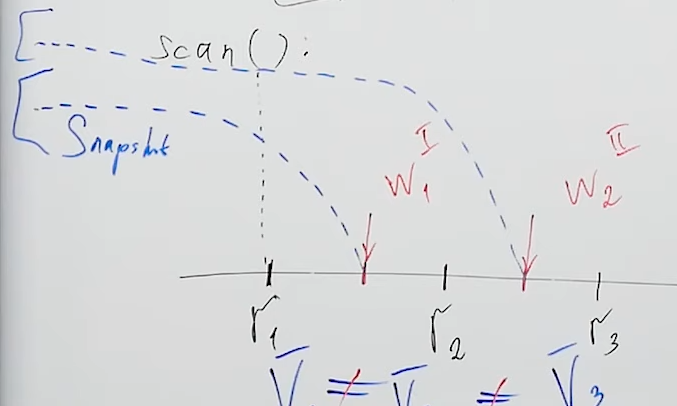 scan():
Snapshot
I II
W1 W2
r1 r2 r3
V ≠ V ≠ V3